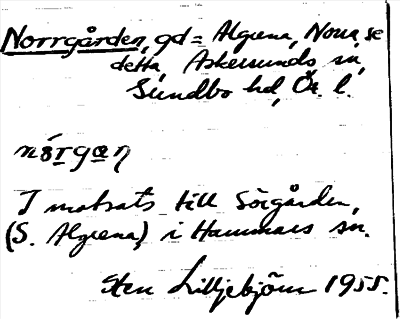 Norrgården, gd = Algrena, Norra, se
detta, Askersunds sn,
Sundbo hd, Ör. l.
nórgan
I motsats till Sörgården,
(S. Algrena) i Hammars sn.
Sten Lilljebjörn 1955.